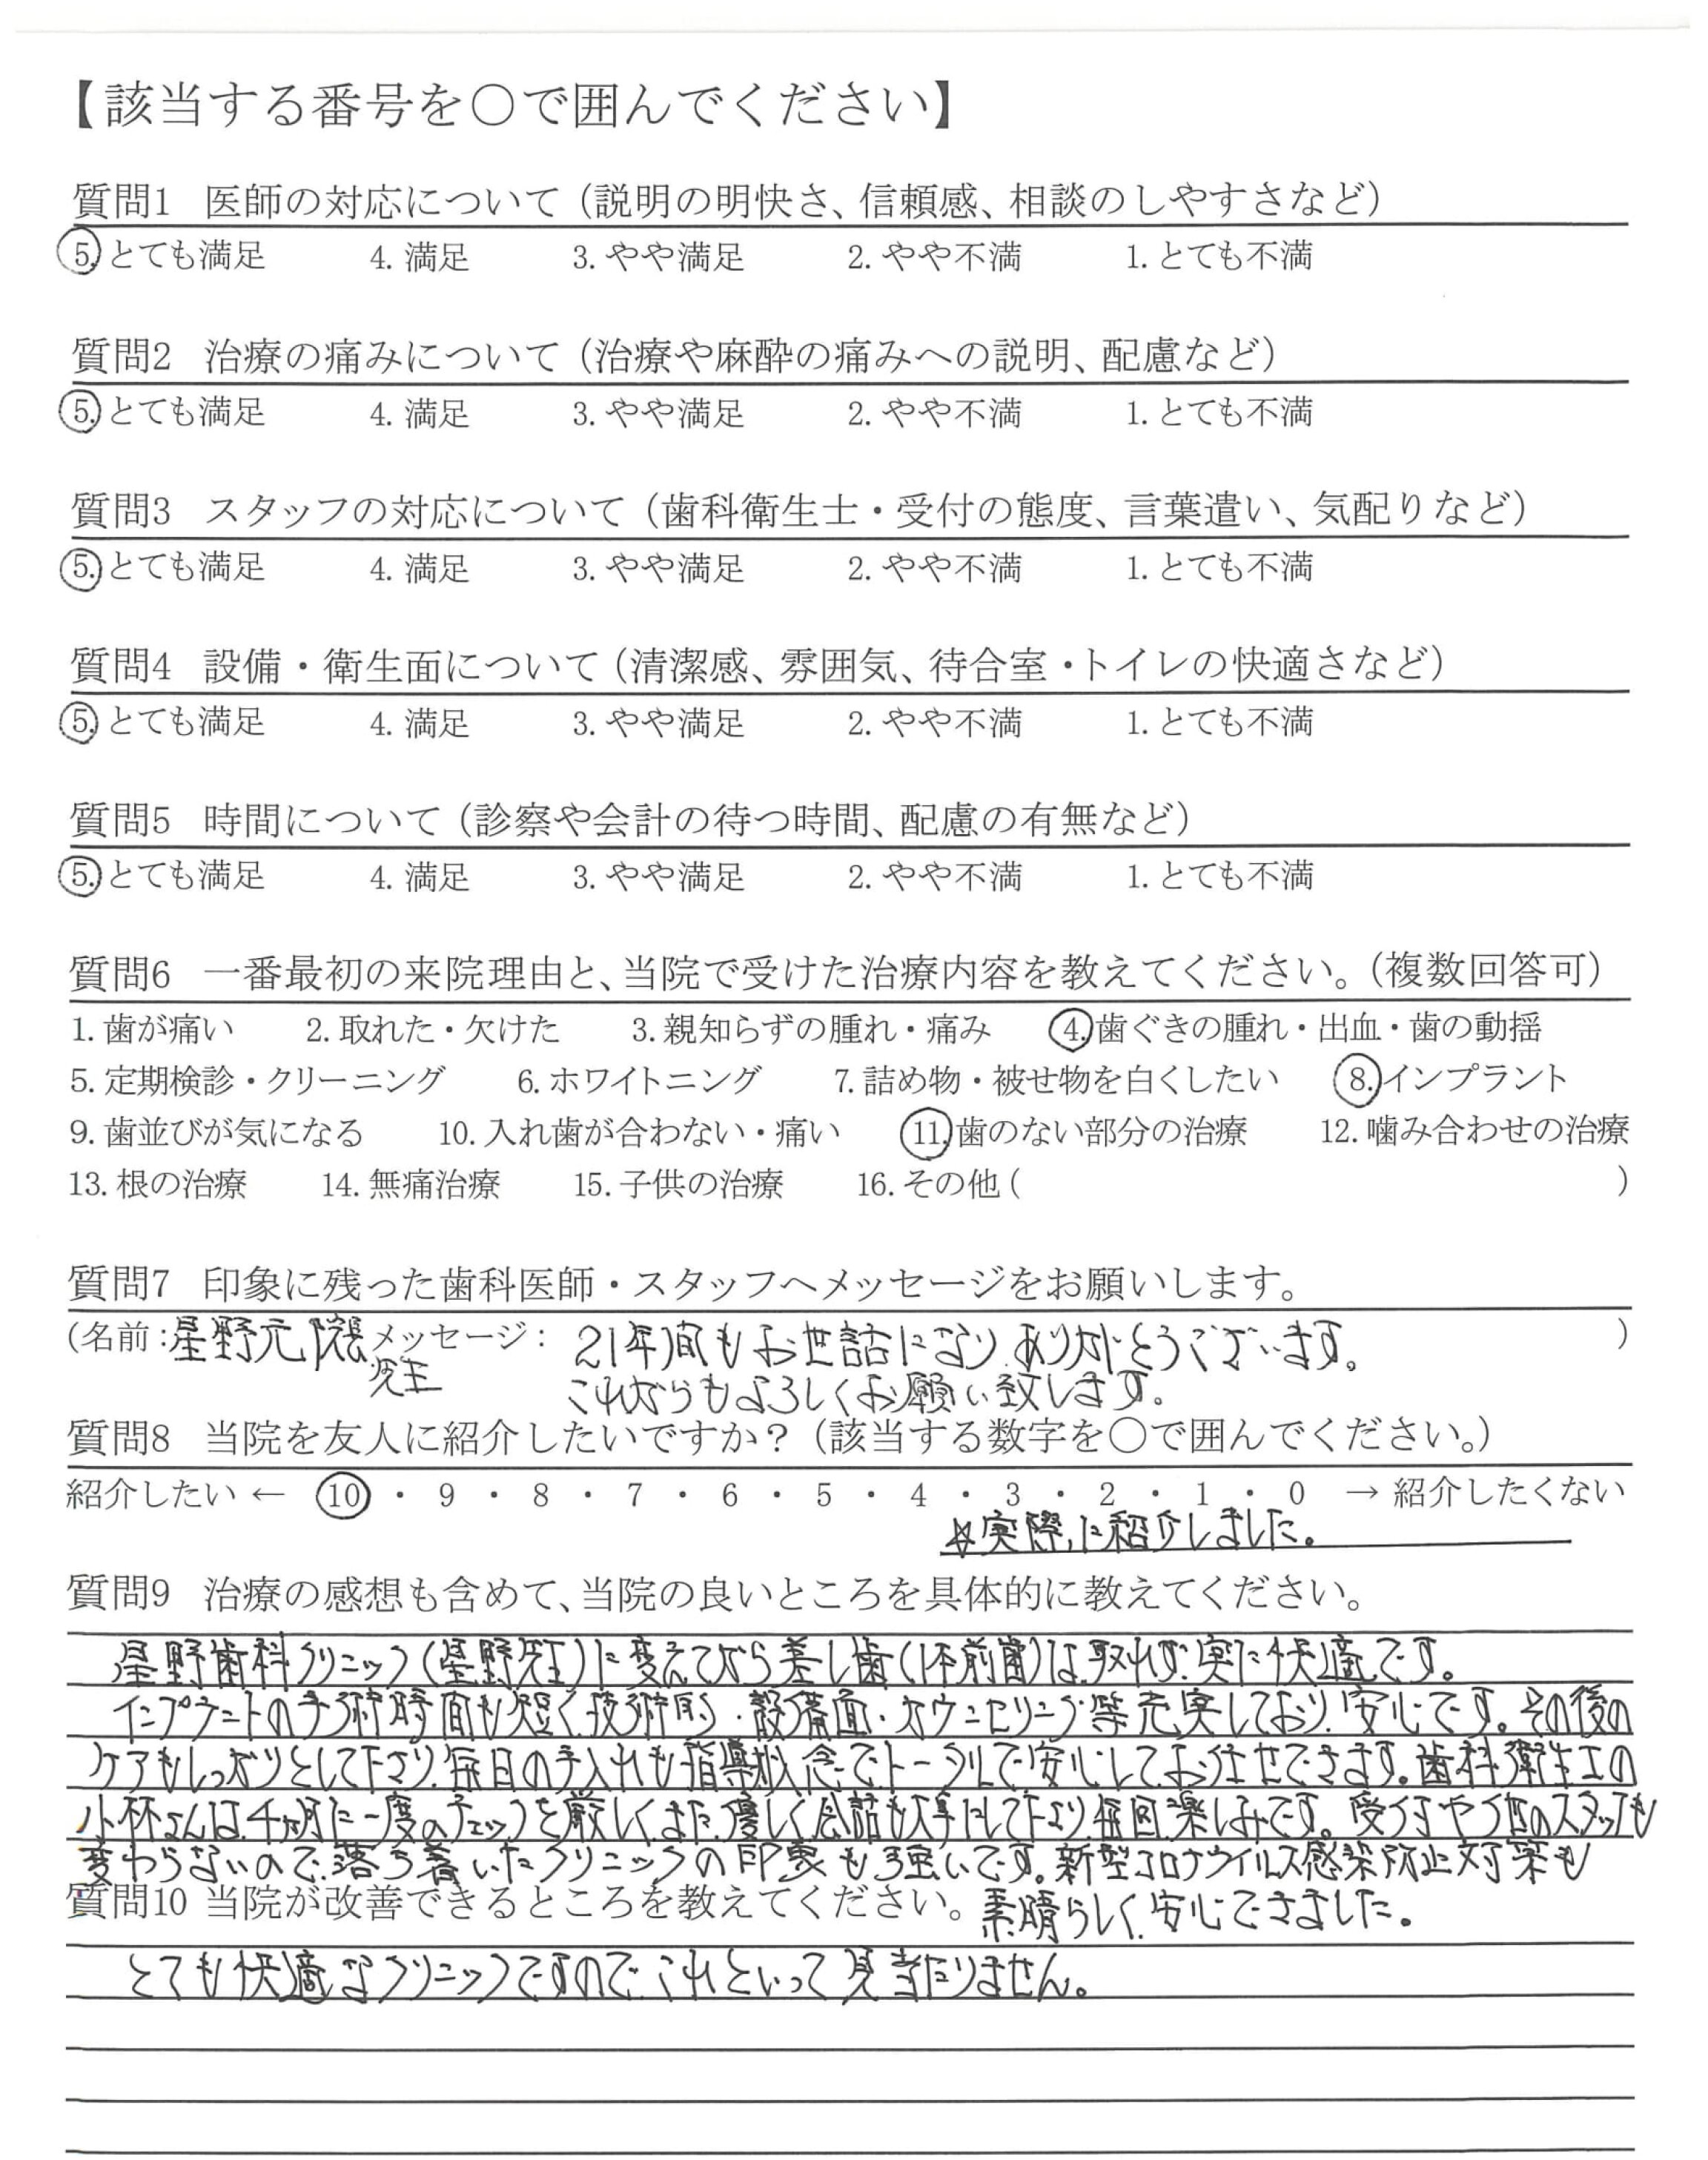 【該当する番号を〇で囲んでください】
質問1 医師の対応について（説明の明快さ、信頼感、相談のしやすさなど）
5. とても満足 4. 満足 3. やや満足 2. やや不満 1. とても不満
質問2 治療の痛みについて（治療や麻酔の痛みへの説明、配慮など）
5. とても満足 4. 満足 3. やや満足 2. やや不満 1. とても不満
質問3 スタッフの対応について（歯科衛生士・受付の態度、言葉遣い、気配りなど）
5. とても満足 4. 満足 3. やや満足 2. やや不満 1. とても不満
質問4 設備・衛生面について（清潔感、雰囲気、待合室・トイレの快適さなど）
5. とても満足 4. 満足 3. やや満足 2. やや不満 1. とても不満
質問5 時間について（診察や会計の待つ時間、配慮の有無など）
5. とても満足 4. 満足 3. やや満足 2. やや不満 1. とても不満
質問6 一番最初の来院理由と、当院で受けた治療内容を教えてください。（複数回答可）
1. 歯が痛い 2. 取れた・欠けた 3. 親知らずの腫れ・痛み 4. 歯ぐきの腫れ・出血・歯の動揺
5. 定期検診・クリーニング 6. ホワイトニング 7. 詰め物・被せ物を白くしたい 8. インプラント
9. 歯並びが気になる 10. 入れ歯が合わない・痛い 11. 歯のない部分の治療 12. 噛み合わせの治療
13. 根の治療 14. 無痛治療 15. 子供の治療 16. その他（ ）
質問7 印象に残った歯科医師・スタッフへメッセージをお願いします。
（名前：星野元院長 メッセージ： 21年間もお世話になり、ありがとうございます。 ）
先生 これからもよろしくお願い致します。
質問8 当院を友人に紹介したいですか？（該当する数字を〇で囲んでください。）
紹介したい ← 10 ・ 9 ・ 8 ・ 7 ・ 6 ・ 5 ・ 4 ・ 3 ・ 2 ・ 1 ・ 0 → 紹介したくない
☆実際に紹介しました。
質問9 治療の感想も含めて、当院の良いところを具体的に教えてください。
星野歯科クリニック（星野先生）に変えてから差し歯（1本前歯）は取れず、実に快適です。
インプラントの手術時間も短く、技術的・設備面・カウンセリング等充実しており、安心です。その後の
ケアもしっかりとして下さり、毎日の手入れも指導入念でトータルで安心してお任せできます。歯科衛生士の
小林さんは、4ヶ月に一度のチェックを厳しくまた、優しく会話も大事にして下さり毎回楽しみです。受付や他のスタッフも
変わらないので、落ち着いたクリニックの印象も強いです。新型コロナウイルス感染防止対策も
素晴らしく、安心できました。
質問10 当院が改善できるところを教えてください。
とても快適なクリニックですので、これといって見当たりません。